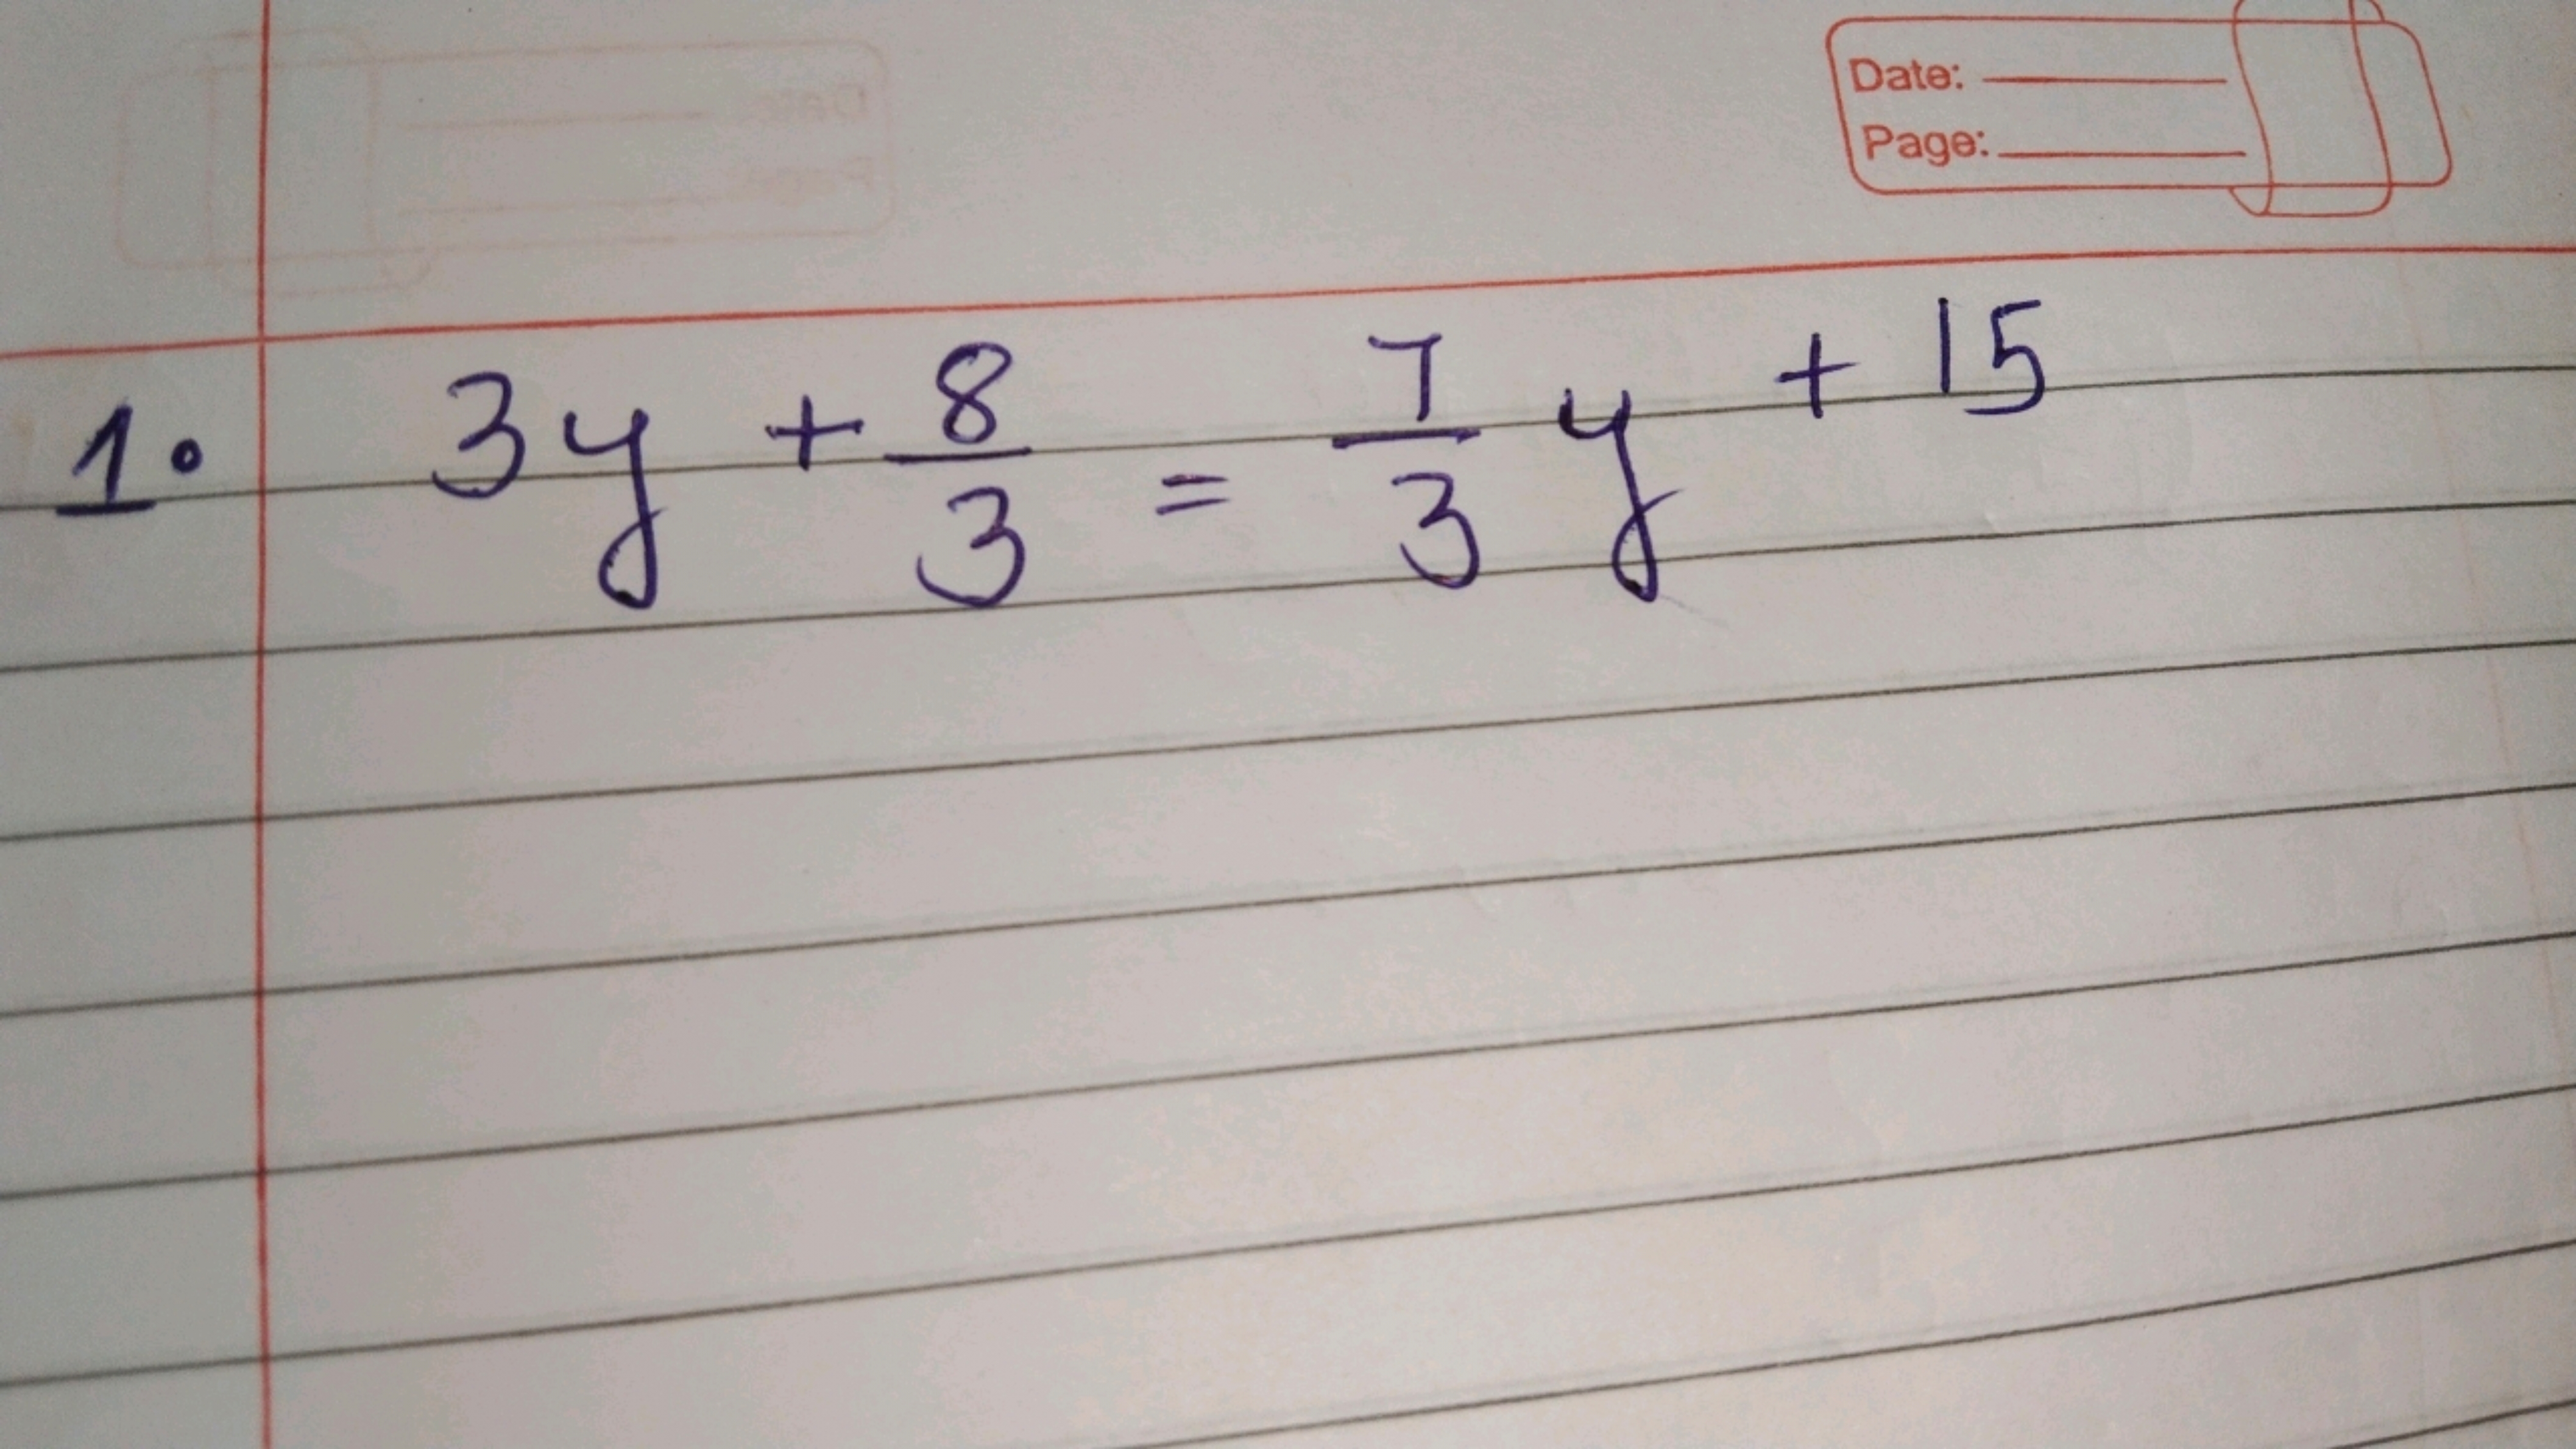 Date:
Page:
1. 3y + 8/3 = 7/3 y + 15